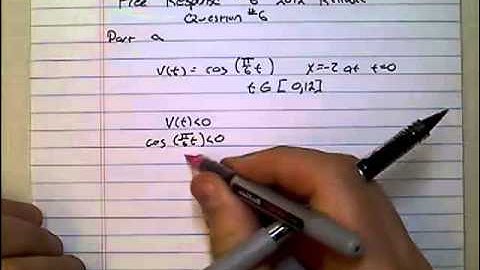 Free Response 2012
Question #6
Part a
V(t) = cos (π/6 t) x=-2 at t=0
t ∈ [0,12]
V(t)<0
cos (π/6 t)<0